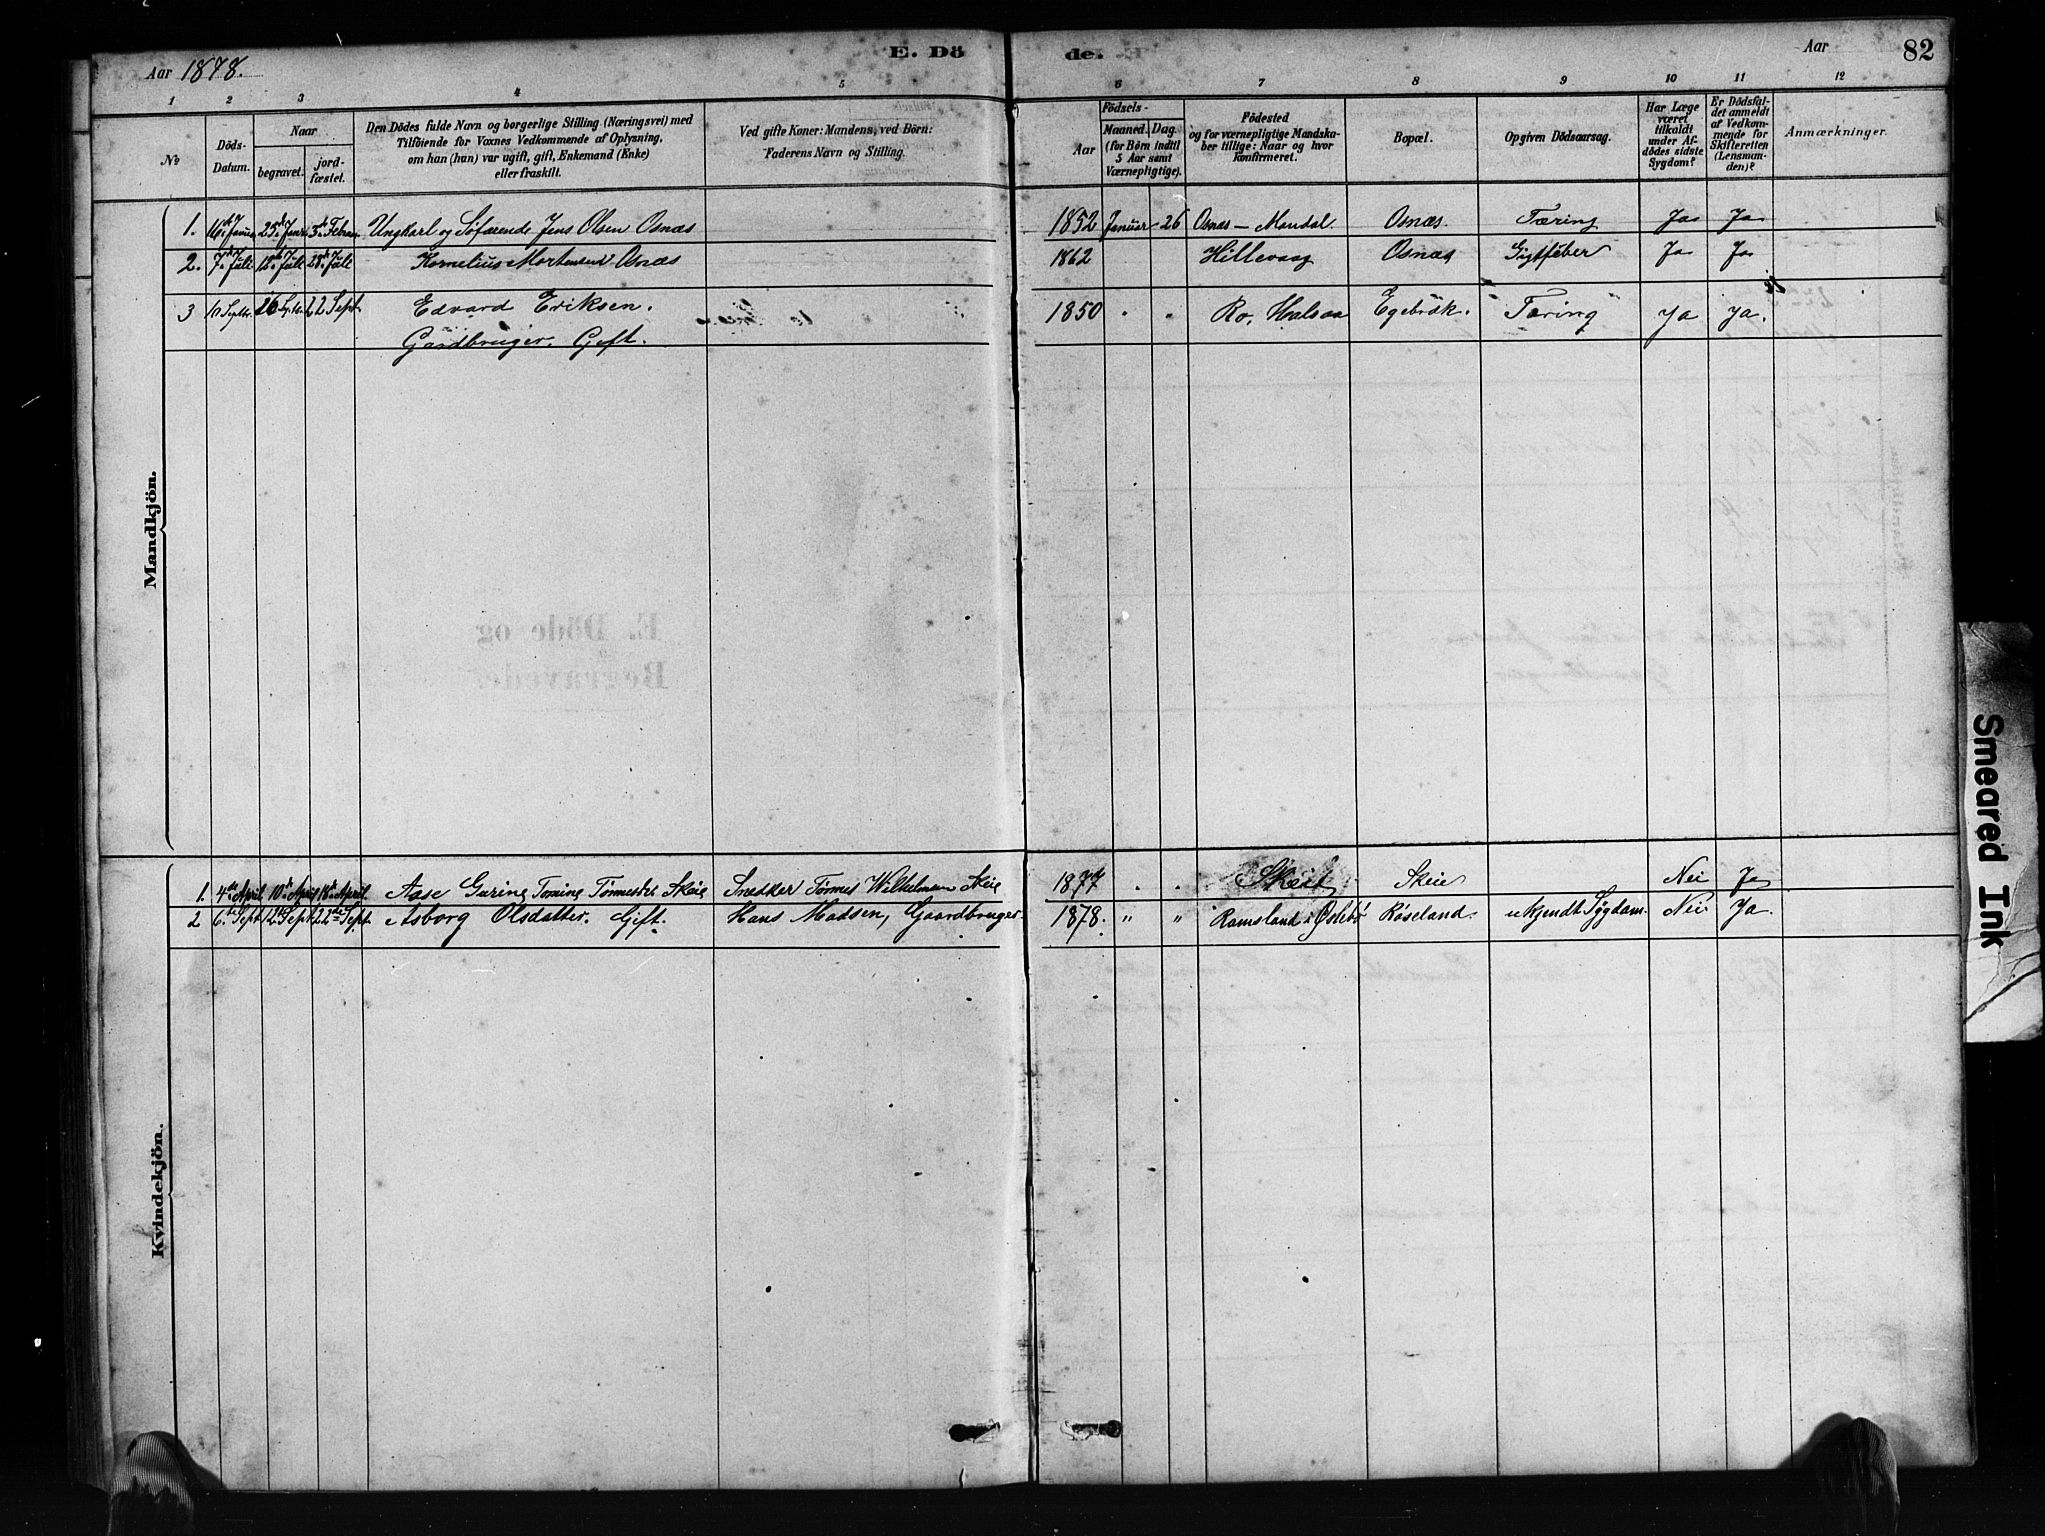 Aar 1878.
E. Dö
de.
Aar
82
1 2 3 4 5 6 7 8 9 10 11 12
No
Döds-
Datum.
Naar
begravet.
jord-
fæstet.
Den Dödes fulde Navn og borgerlige Stilling (Næringsvei) med
Tilföiende for Voxnes Vedkommende af Oplysning,
om han (hun) var ugift, gift, Enkemand (Enke)
eller fraskilt.
Ved gifte Koner: Mandens, ved Börn:
Faderens Navn og Stilling.
Födsels-
Aar
Maaned. Dag.
(for Börn indtil
5 Aar samt
Værnepligtige).
Födested
og for værnepligtige Mandska-
ber tillige: Naar og hvor
konfirmeret.
Bopæl.
Opgiven Dödsaarsag.
Har Læge
været
tilkaldt
under Af-
dödes sidste
Sygdom?
Er Dödsfal-
det anmeldt
af Vedkom-
mende for
Skifteretten
(Lensman-
den)?
Anmærkninger.
Mandkjön.
1. 16de Januar 25de Janr 3de Februar Ungkarl og Söfarende Jens Olsen Osnæs 1852 Januar 26 Osnæs - Mandal. Osnæs. Tæring Ja Ja
2. 7de Juli 12de Juli 28de Juli Kornelius Mortensen Osnæs 1862 Hillevaag Osnæs Gigtfeber Ja Ja
3 10 Septbr. 16 Septbr. 22 Sept. Edvard Eriksen. 1850 " " Ro, Halsaa Egebrök. Tæring Ja Ja.
Gardbruger. Gift.
Kvindekjön.
1. 4de April 10de April 18de April. Aase Gurine Tomine Tönnesdtr Skeie Snedker Tönnes Wilhelmsen Skeie 1877 " " Skeie Skeie Nei Ja
2 6te Sept 12te Sept 22de Sept. Asborg Olsdatter. Gift. Hans Madsen, Gaardbruger 1878. " " Ramsland i Øslebø Røseland. ukjendt Sygdom. Nei Ja.
Smeared Ink